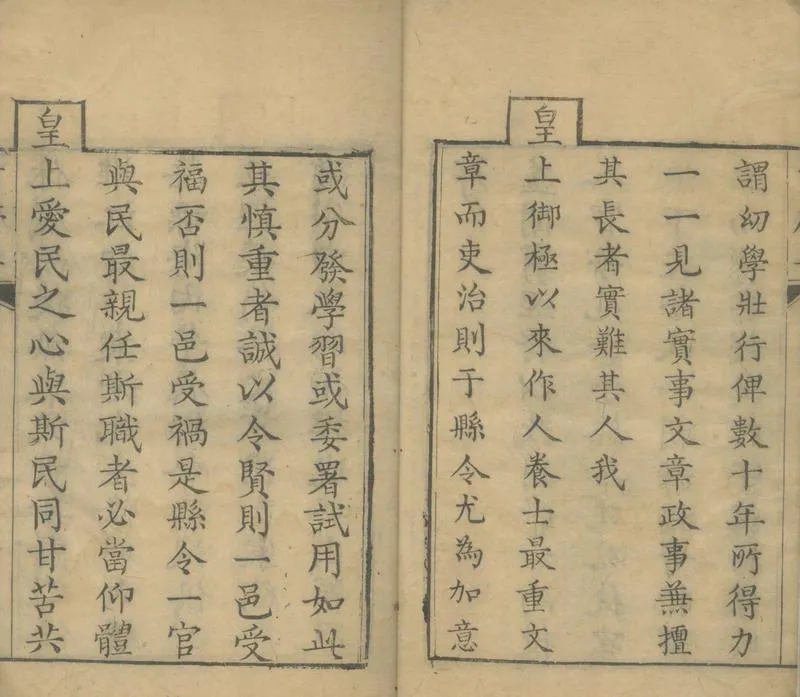 謂幼學壯行俾數十年所得力
一一見諸實事文章政事兼擅
其長者實難其人我
皇上御極以來作人養士最重文
章而吏治則于縣令尤為加意
或分發學習或委署試用如此
其慎重者誠以令賢則一邑受
福否則一邑受禍是縣令一官
與民最親任斯職者必當仰體
皇上愛民之心與斯民同甘苦共